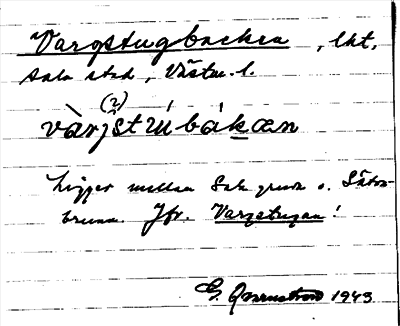 Vargstugbacken, lht.
Sala stad, Västm. l.
(2)
vàrjstúbákæn
Ligger mellan Sala gruva o. Sätra-
brunn. Jfr. Vargstugan!
G. 1943